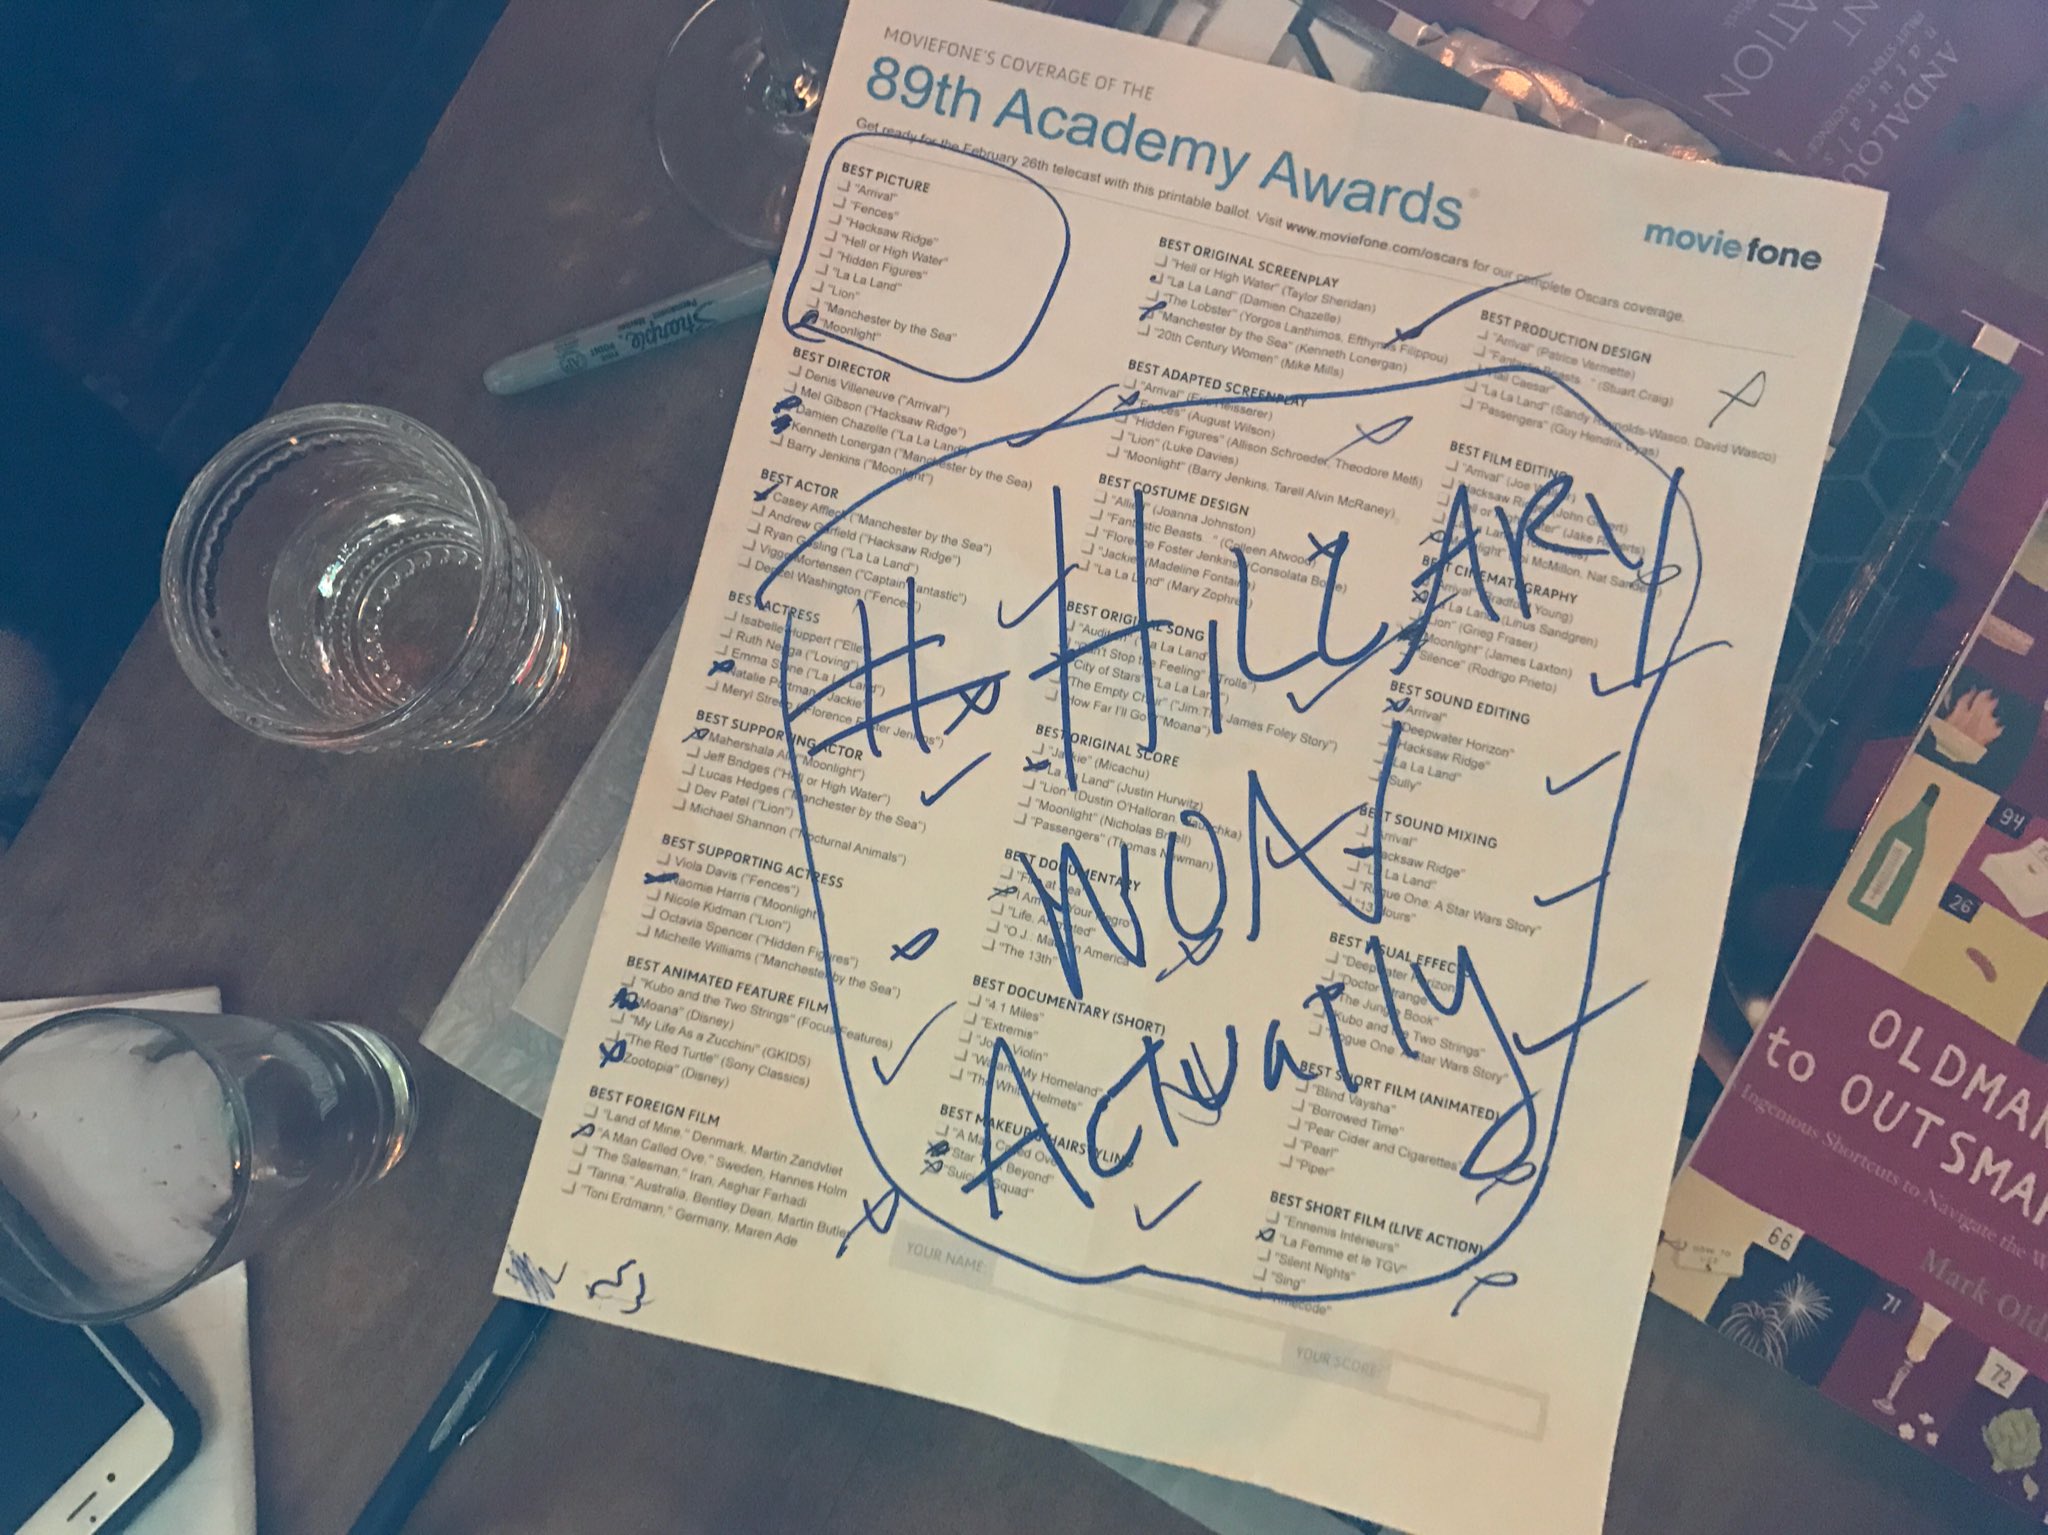 MOVIEFONE'S COVERAGE OF THE
89th Academy Awards
Get ready for the February 26th telecast with this printable ballot. Visit www.moviefone.com/oscars for our complete Oscars coverage.
moviefone
BEST PICTURE
"Arrival"
"Fences"
"Hacksaw Ridge"
"Hell or High Water"
"Hidden Figures"
"La La Land"
"Lion"
"Manchester by the Sea"
"Moonlight"
BEST DIRECTOR
Denis Villeneuve ("Arrival")
Mel Gibson ("Hacksaw Ridge")
Damien Chazelle ("La La Land")
Kenneth Lonergan ("Manchester by the Sea)
Barry Jenkins ("Moonlight")
BEST ACTOR
Casey Affleck ("Manchester by the Sea")
Andrew Garfield ("Hacksaw Ridge")
Ryan Gosling ("La La Land")
Viggo Mortensen ("Captain Fantastic")
Denzel Washington ("Fences")
BEST ACTRESS
Isabelle Huppert ("Elle")
Ruth Negga ("Loving")
Emma Stone ("La La Land")
Natalie Portman ("Jackie")
Meryl Streep ("Florence Foster Jenkins")
BEST SUPPORTING ACTOR
Mahershala Ali ("Moonlight")
Jeff Bridges ("Hell or High Water")
Lucas Hedges ("Manchester by the Sea")
Dev Patel ("Lion")
Michael Shannon ("Nocturnal Animals")
BEST SUPPORTING ACTRESS
Viola Davis ("Fences")
Naomie Harris ("Moonlight")
Nicole Kidman ("Lion")
Octavia Spencer ("Hidden Figures")
Michelle Williams ("Manchester by the Sea")
BEST ANIMATED FEATURE FILM
"Kubo and the Two Strings" (Focus Features)
"Moana" (Disney)
"My Life As a Zucchini" (GKIDS)
"The Red Turtle" (Sony Classics)
"Zootopia" (Disney)
BEST FOREIGN FILM
"Land of Mine," Denmark, Martin Zandvliet
"A Man Called Ove," Sweden, Hannes Holm
"The Salesman," Iran, Asghar Farhadi
"Tanna," Australia, Bentley Dean, Martin Butler
"Toni Erdmann," Germany, Maren Ade
BEST ORIGINAL SCREENPLAY
"Hell or High Water" (Taylor Sheridan)
"La La Land" (Damien Chazelle)
"The Lobster" (Yorgos Lanthimos, Efthymis Filippou)
"Manchester by the Sea" (Kenneth Lonergan)
"20th Century Women" (Mike Mills)
BEST ADAPTED SCREENPLAY
"Arrival" (Eric Heisserer)
"Fences" (August Wilson)
"Hidden Figures" (Allison Schroeder, Theodore Melfi)
"Lion" (Luke Davies)
"Moonlight" (Barry Jenkins, Tarell Alvin McRaney)
BEST COSTUME DESIGN
"Allied" (Joanna Johnston)
"Fantastic Beasts..." (Colleen Atwood)
"Florence Foster Jenkins" (Consolata Boyle)
"Jackie" (Madeline Fontaine)
"La La Land" (Mary Zophres)
BEST ORIGINAL SONG
"Audition" ("La La Land")
"Can't Stop the Feeling" ("Trolls")
"City of Stars" ("La La Land")
"The Empty Chair" ("Jim: The James Foley Story")
"How Far I'll Go" ("Moana")
BEST ORIGINAL SCORE
"Jackie" (Micachu)
"La La Land" (Justin Hurwitz)
"Lion" (Dustin O'Halloran, Hauschka)
"Moonlight" (Nicholas Britell)
"Passengers" (Thomas Newman)
BEST DOCUMENTARY
"Fire at Sea"
"I Am Not Your Negro"
"Life, Animated"
"O.J.: Made in America"
"The 13th"
BEST DOCUMENTARY (SHORT)
"4.1 Miles"
"Extremis"
"Joe's Violin"
"Watani: My Homeland"
"The White Helmets"
BEST MAKEUP & HAIRSTYLING
"A Man Called Ove"
"Star Trek Beyond"
"Suicide Squad"
BEST PRODUCTION DESIGN
"Arrival" (Patrice Vermette)
"Fantastic Beasts..." (Stuart Craig)
"Hail Caesar"
"La La Land" (Sandy Reynolds-Wasco, David Wasco)
"Passengers" (Guy Hendrix Dyas)
BEST FILM EDITING
"Arrival" (Joe Walker)
"Hacksaw Ridge" (John Gilbert)
"Hell or High Water" (Jake Roberts)
"La La Land"
"Moonlight" (Joi McMillon, Nat Sanders)
BEST CINEMATOGRAPHY
"Arrival" (Bradford Young)
"La La Land" (Linus Sandgren)
"Lion" (Grieg Fraser)
"Moonlight" (James Laxton)
"Silence" (Rodrigo Prieto)
BEST SOUND EDITING
"Arrival"
"Deepwater Horizon"
"Hacksaw Ridge"
"La La Land"
"Sully"
BEST SOUND MIXING
"Arrival"
"Hacksaw Ridge"
"La La Land"
"Rogue One: A Star Wars Story"
"13 Hours"
BEST VISUAL EFFECTS
"Deepwater Horizon"
"Doctor Strange"
"The Jungle Book"
"Kubo and the Two Strings"
"Rogue One: A Star Wars Story"
BEST SHORT FILM (ANIMATED)
"Blind Vaysha"
"Borrowed Time"
"Pear Cider and Cigarettes"
"Pearl"
"Piper"
BEST SHORT FILM (LIVE ACTION)
"Ennemis Intérieurs"
"La Femme et le TGV"
"Silent Nights"
"Sing"
"Timecode"
YOUR NAME:
YOUR SCORE:
#HILLARY
WON
ActUally
Sharpie
FINE POINT
ANDALOU
naturals
FRUIT STEM CELL SCIENCE
94
26
OLDMA
to OUTSMA
Ingenious Shortcuts to Navigate the W
Mark Old
66
71
72